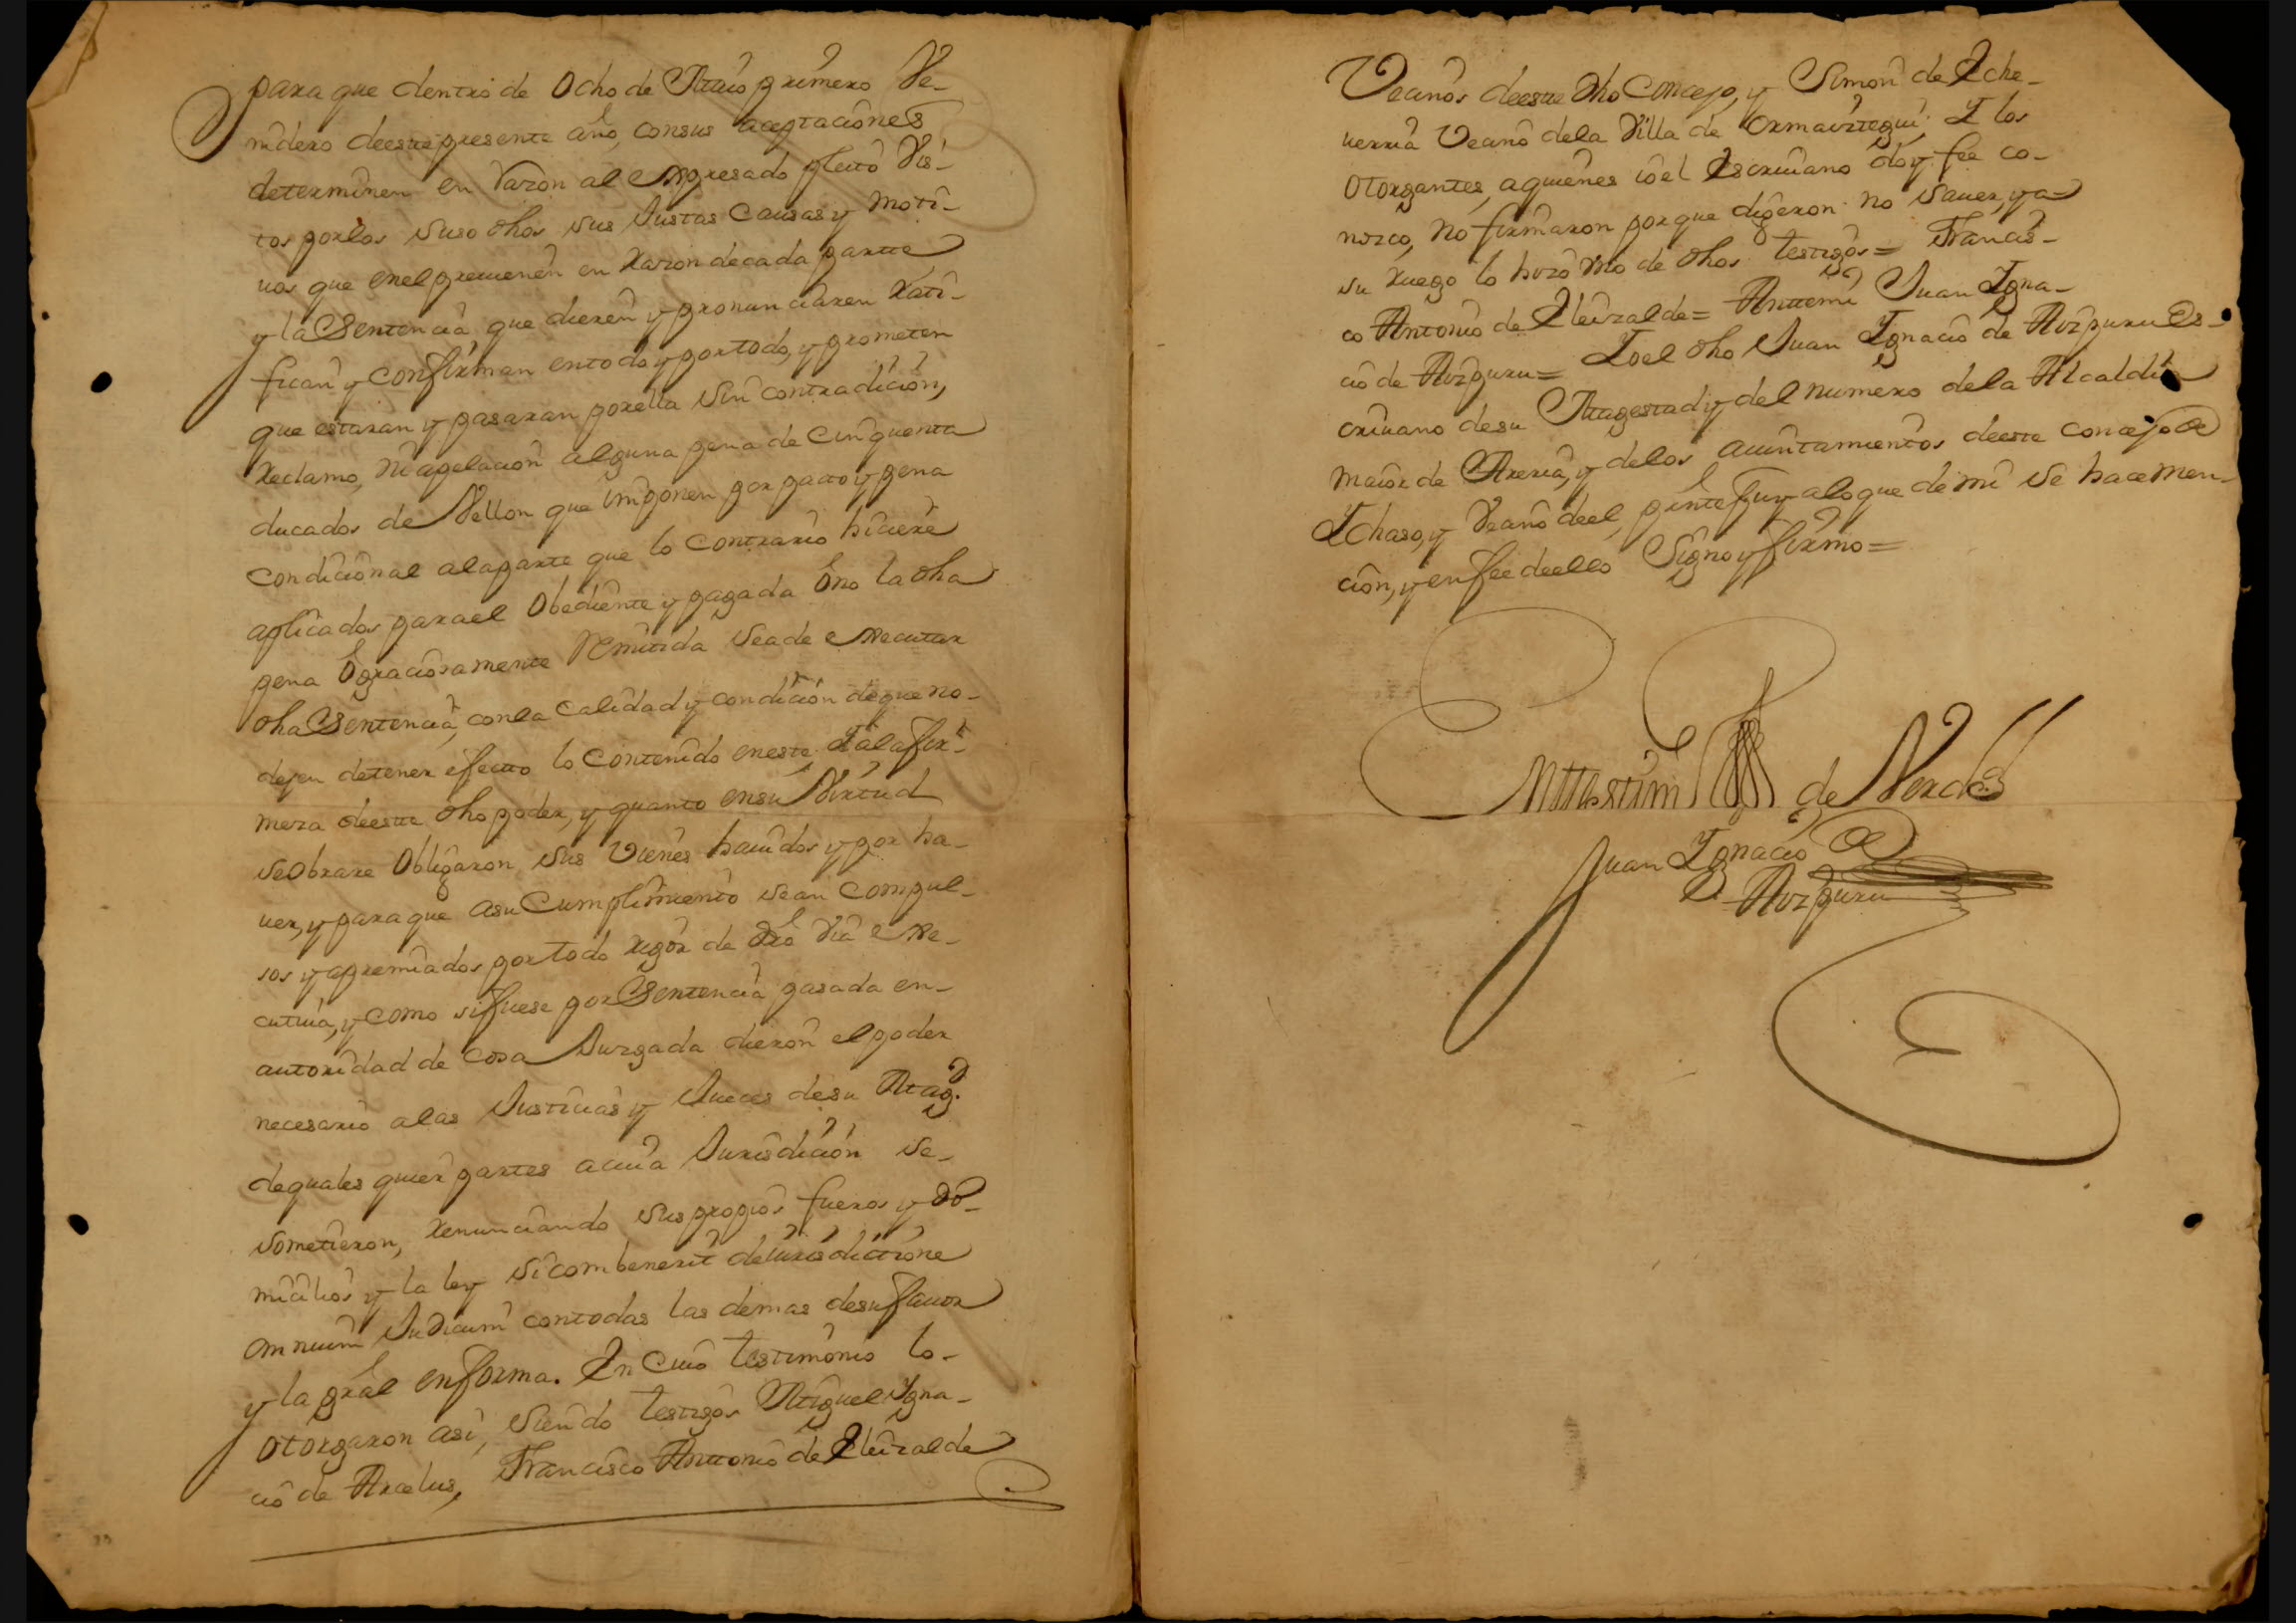 para que dentro de Ocho de Maio primero Ve-
nidero deeste presente año, consus aceptaciones
determinen en razon al expresado pleito Vis-
tos por los suso dhos sus Justas Causas y moti-
uos que enel preuienen en razon decada partte
y la Sentencia que dieren y pronunciaren rati-
fican y confirman entodo y por todo, y prometen
que estaran y pasaran porella sin contradicion,
reclamo, ni apelacion alguna pena de Cinquenta
ducados de Vellon que imponen por pacto y pena
condicional alaparte que lo contrario hiciere
aplicados parael Obediente y pagada óno la dha
pena ógraciosamente remitida seade executar
dha Sentencia, conla calidad y condicion deque no-
dejen detener efecto lo contenido eneste, I ala fir-
meza deeste dho poder, y quanto ensu Virtud
seobrare Obligaron sus vienes hauidos y por ha-
uer, y paraque asu Cumplimiento sean compul-
sos y apremiados por todo rigor de dro Via exe-
cutiua, y como sifuese por Sentencia pasada en-
autoridad de cosa Juzgada dieron el poder
necesario alas Justicias y Jueces desu Magd.
dequales quier partes acuia Jurisdicion se-
sometieron, renunciando sus propios fueros y do-
micilios y la ley sicombenerit deiurisdictione
omnium Judicum contodas las demas desufauor
y la gral enforma. En Cuio testimonio lo-
otorgaron asi, siendo testigos Miguel Igna-
cio de Arcelus, Francisco Anttonio de Eleizalde
Vecinos deeste dho Concejo, y Simon de Eche-
uerria Vecino dela Villa de Ormaiztegui; I los
Otorgantes, aquienes io el Escriuano doy fee co-
nozco, no firmaron porque digeron no sauer, y a
su ruego lo hizo vno de dhos testigos= Francis-
co Antonio de Eleizalde= Anttemi Juan Igna-
cio de Aizpuru= Ioel dho Juan Ignacio de Aizpuru Es-
criuano desu Magestad y del numero dela Alcaldia
maior de Areria, y delos aiuntamientos deeste concejo de
Ichaso, y Vecino deel, pnte fuy aloque demi se hace men-
cion, y enfee deello Signo y firmo=
de Verdad
Juan Ignacio de
Aizpuru